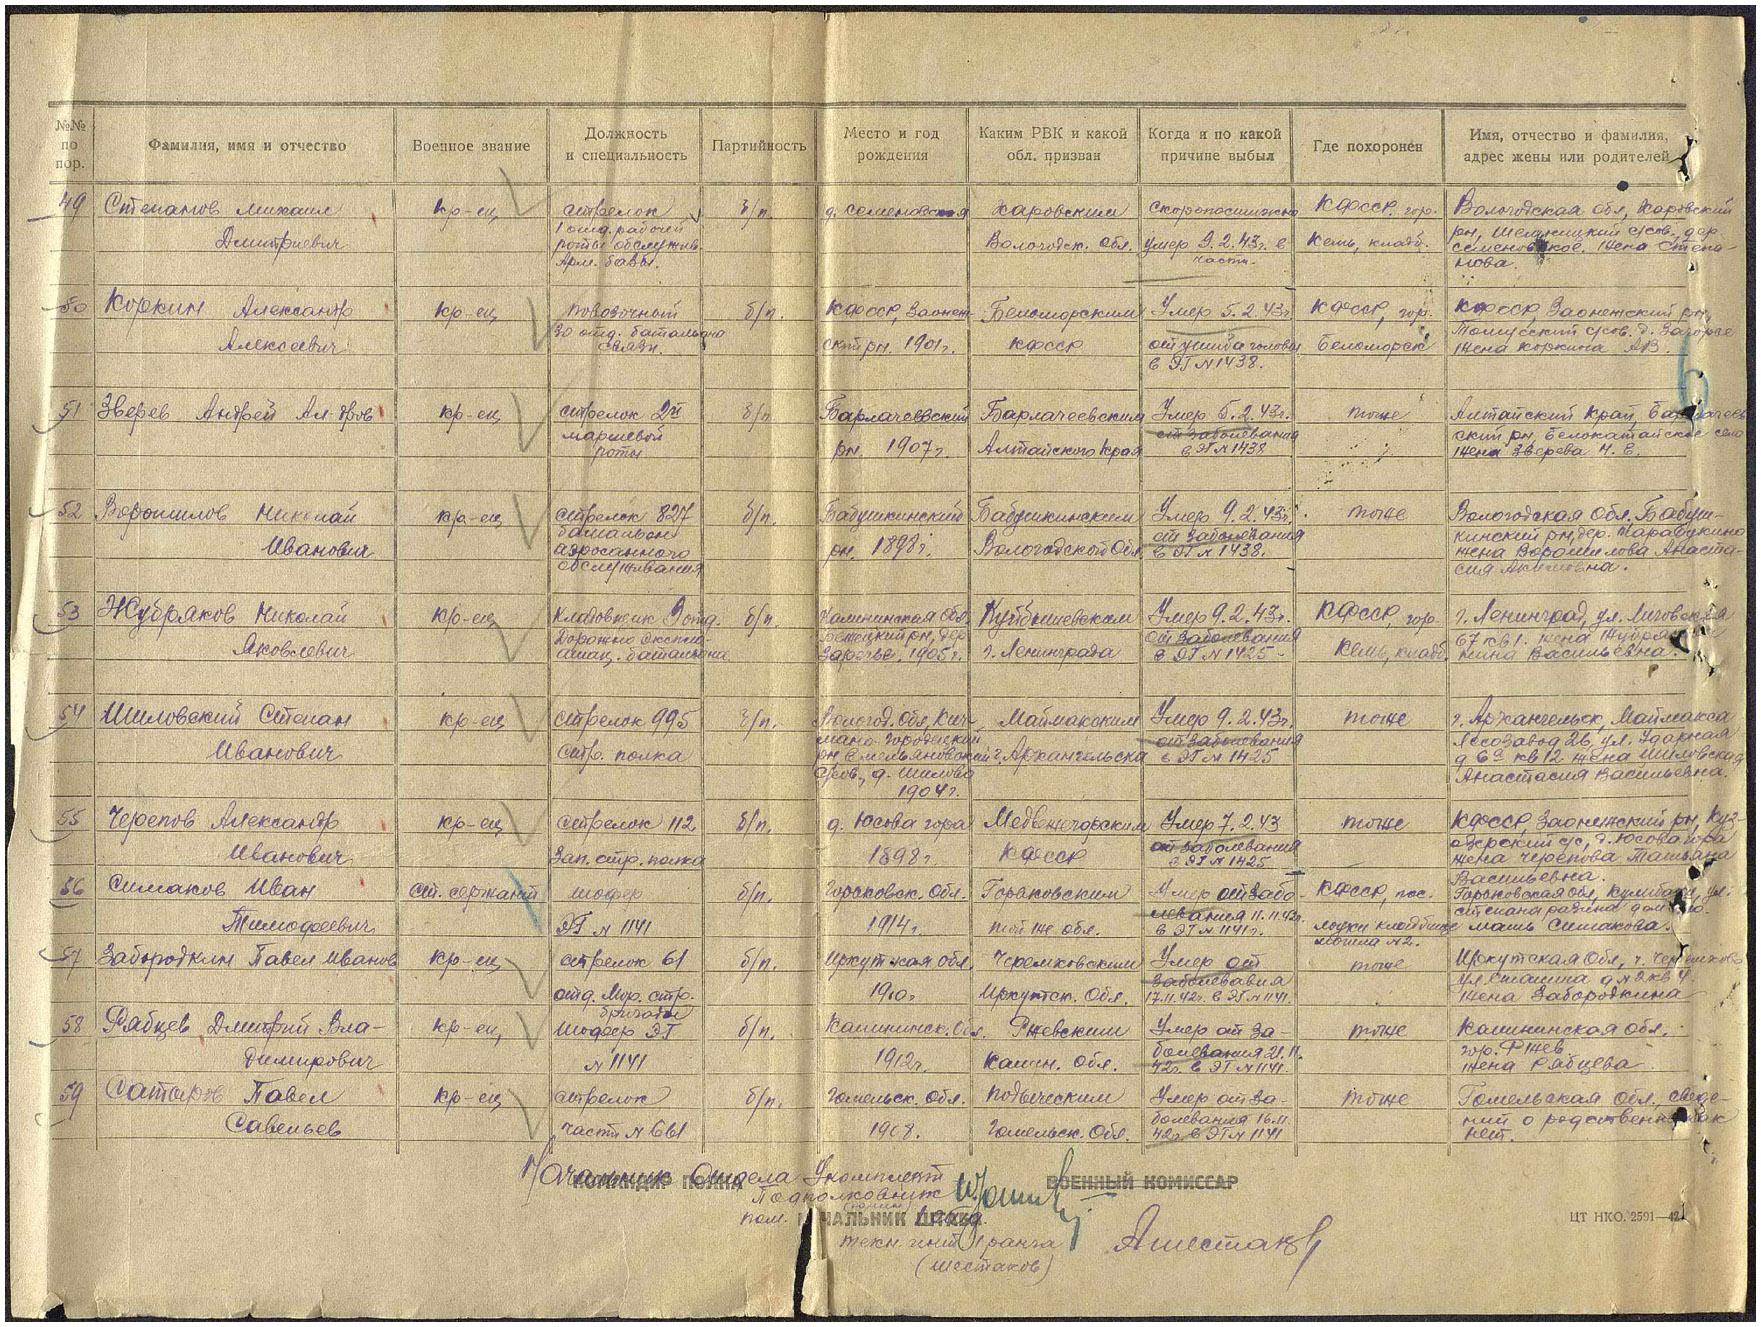 №№ по пор.
Фамилия, имя и отчество
Военное звание
Должность и специальность
Партийность
Место и год рождения
Каким РВК и какой обл. призван
Когда и по какой причине выбыл
Где похоронен
Имя, отчество и фамилия, адрес жены или родителей
49
Степанов Михаил
Дмитриевич
кр-ец
стрелок
1 отд. рабочей
роты обслужив.
Арм. базы.
б/п.
д. Семеновская
Харовским
Вологодск. обл.
скоропостижно
умер 9.2.43г. в
части.
КФССР, гор.
Кемь, кладб.
Вологодская обл, Харовский
рн, с/сов. дер.
Семеновское. жена Степа-
нова.
50
Коркин Александр
Алексеевич
кр-ец
повозочный
30 отд. батальона
связи.
б/п.
КФССР, Заонеж-
ский рн. 1901г.
Беломорским
КФССР
Умер 5.2.43г.
от ушиба головы
в ЭГ № 1438.
КФССР, гор.
Беломорск
КФССР Заонежский рн,
с/сов. д. Загорье
жена Коркина А.В.
51
Зверев Андрей Ал-дров
кр-ец
стрелок 2й
маршевой
роты
б/п
Барлачеевский
рн. 1907г.
Барлачеевским
Алтайского края
Умер 5.2.43г.
от заболевания
в ЭГ № 1438
тоже
Алтайский край,
ский рн, село
жена Зверева Н. Е.
52
Ворошилов Николай
Иванович
кр-ец
стрелок 827
батальон
аэросанного
обслуживания
б/п.
Бабушкинский
рн. 1898г.
Бабушкинским
Вологодской обл.
Умер 9.2.43г.
от заболевания
в ЭГ № 1438.
тоже
Вологодская обл. Бабуш-
кинский рн, дер. Тарабукино
жена Ворошилова Анаста-
сия Акимовна.
53
Жубряков Николай
Яковлевич
кр-ец
Кладовщик 9 отд.
дорожно эксплоа-
атац. батальона
б/п.
Калининская обл
Бежецкий рн, дер.
Заречье. 1905г.
Куйбышевским
г. Ленинграда
Умер 9.2.43г.
от заболевания
в ЭГ № 1425
КФССР, гор.
Кемь, кладб.
г. Ленинград, ул. Лиговская
67 кв 1. жена
Васильевна.
54
Шиловский Степан
Иванович
кр-ец
стрелок 995
стр. полка
б/п.
Вологод. обл, Кич-
мено-Городецкий
рн Емельяновский
с/сов., д. Шилово
1904г.
Маймакским
г. Архангельска
Умер 9.2.43г.
от заболевания
в ЭГ № 1425
тоже
г. Архангельск, Маймакса
Лесозавод 26, ул. Ударная
д 6а кв 12 жена Шиловская
Анастасия Васильевна.
55
Черепов Александр
Иванович
кр-ец
стрелок 112
Зап. стр. полка
б/п.
д. Юсова гора
1898г.
Медвежгорским
КФССР
Умер 7.2.43
от заболевания
в ЭГ № 1425
тоже
КФССР, Заонежский рн, Куз-
с/с, д. Юсова гора
жена Черепова Татьяна
Васильевна.
56
Симаков Иван
Тимофеевич
ст. сержант
шофер
ЭГ № 1141
б/п.
Горьковск. обл.
1914г.
Горьковским
той же обл.
Умер от забо-
левания 11.11.42г.
в ЭГ № 1141г.
КФССР, пос.
кладбище
могила № 2.
Горьковская обл, Кулебаки, ул.
Степана Разина дом
мать Симакова.
57
Забородкин Павел Иванов
кр-ец
стрелок 61
отд. Мор. стр.
бригады
б/п.
Иркутская обл.
1910г.
Черемховским
Иркутск. обл.
Умер от
заболевания
17.11.42г. в ЭГ № 1141.
тоже
Иркутская обл, г. Черемхово
ул Сталина д № 2 кв 4
жена Забородкина
58
Рабцев Дмитрий Вла-
димирович
кр-ец
шофер ЭГ
№ 1141
б/п.
Калининск. обл.
1912г.
Ржевским
Калин. обл.
Умер от за-
болевания 21.11.
42г. в ЭГ № 1141.
тоже
Калининская обл.
гор. Ржев
жена Рабцева
59
Сатыров Павел
Савельев
кр-ец
стрелок
части № 661
б/п.
Гомельск. обл.
1908.
Гомельск. обл.
Умер от за-
болевания 16.11.
42г. в ЭГ № 1141
тоже
Гомельская обл. сведе-
ний о родственниках
нет.
Начальник Отдела Укомплект
КОМАНДИР ПОЛКА
ВОЕННЫЙ КОМИССАР
Подполковник
пом.
НАЧАЛЬНИК ШТАБА
техн. инт. 1 ранга
(Шестаков)
ЦТ НКО. 2591—42